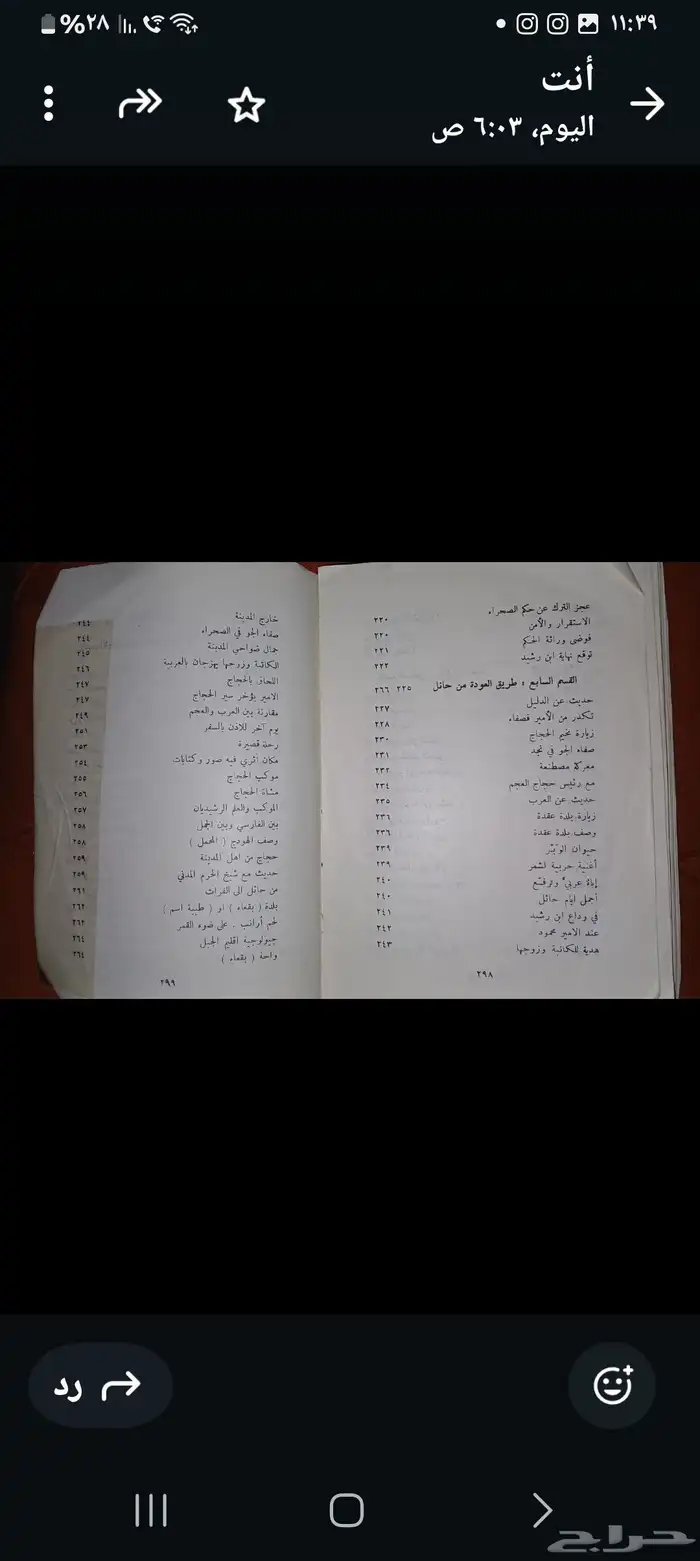 ١١:٣٩
٢٨%
أنت
اليوم، ٦:٠٣ ص
عجز الترك عن حكم الصحراء ٢٢٠
الاستقرار والأمن ٢٢٠
فوضى وراثة الحكم ٢٢١
توقع نهاية ابن رشيد ٢٢٢
القسم السابع : طريق العودة من حائل ٢٢٥ ٢٦٦
حديث عن الدليل ٢٢٧
تكدر من الأمير فصفاء ٢٢٨
زيارة مخيم الحجاج ٢٣٠
صفاء الجو في نجد ٢٣١
معركة مصطنعة ٢٣٢
مع رئيس حجاج العجم ٢٣٤
حديث عن العرب ٢٣٥
زيارة بلدة عقدة ٢٣٦
وصف بلدة عقدة ٢٣٦
حيوان الوَبْر ٢٣٩
أغنية حربية لشمر ٢٣٩
إباء عربيّ وترفّع ٢٤٠
أجمل ايام حائل ٢٤٠
في وداع ابن رشيد ٢٤١
عند الامير حمود ٢٤٢
هدية للكاتبة وزوجها ٢٤٣
٢٩٨
خارج المدينة ٢٤٤
صفاء الجو في الصحراء ٢٤٤
جمال ضواحي المدينة ٢٤٥
الكاتبة وزوجها يهزجان بالعربية ٢٤٦
اللحاق بالحجاج ٢٤٧
الامير يؤخر سير الحجاج ٢٤٧
مقارنة بين العرب والعجم ٢٤٩
يوم آخر للاذن بالسفر ٢٥١
رحلة قصيرة ٢٥٣
مكان اثري فيه صور وكتابات ٢٥٤
موكب الحجاج ٢٥٥
مشاة الحجاج ٢٥٦
الموكب والعلم الرشيديان ٢٥٧
بين الفارسي وبين الجمل ٢٥٨
وصف الهودج ( المحمل ) ٢٥٨
حجاج من اهل المدينة ٢٥٩
حديث مع شيخ الحرم المدني ٢٥٩
من حائل الى الفرات ٢٦١
بلدة ( بقعاء ) او ( طيبة اسم ) ٢٦٢
لحم أرانب . على ضوء القمر ٢٦٢
جيولوجية اقليم الجبل ٢٦٤
واحة ( بقعاء ) ٢٦٤
٢٩٩
رد
حراج